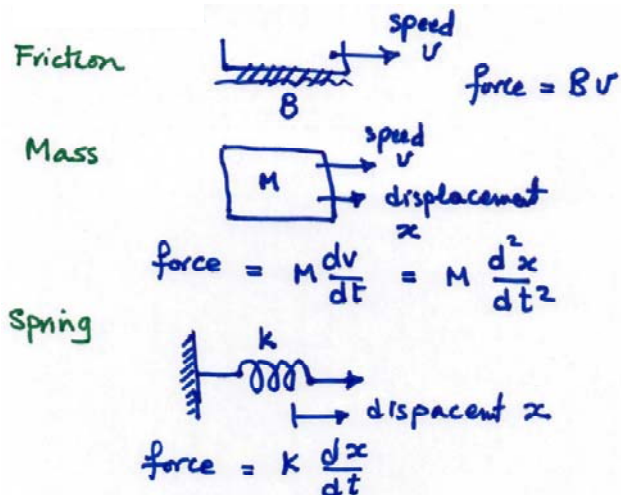 Friction
speed
v
B
force = Bv
Mass
speed
v
M
displacement
x
force = M dv/dt = M d²x/dt²
Spring
K
dispacent x
force = K dx/dt